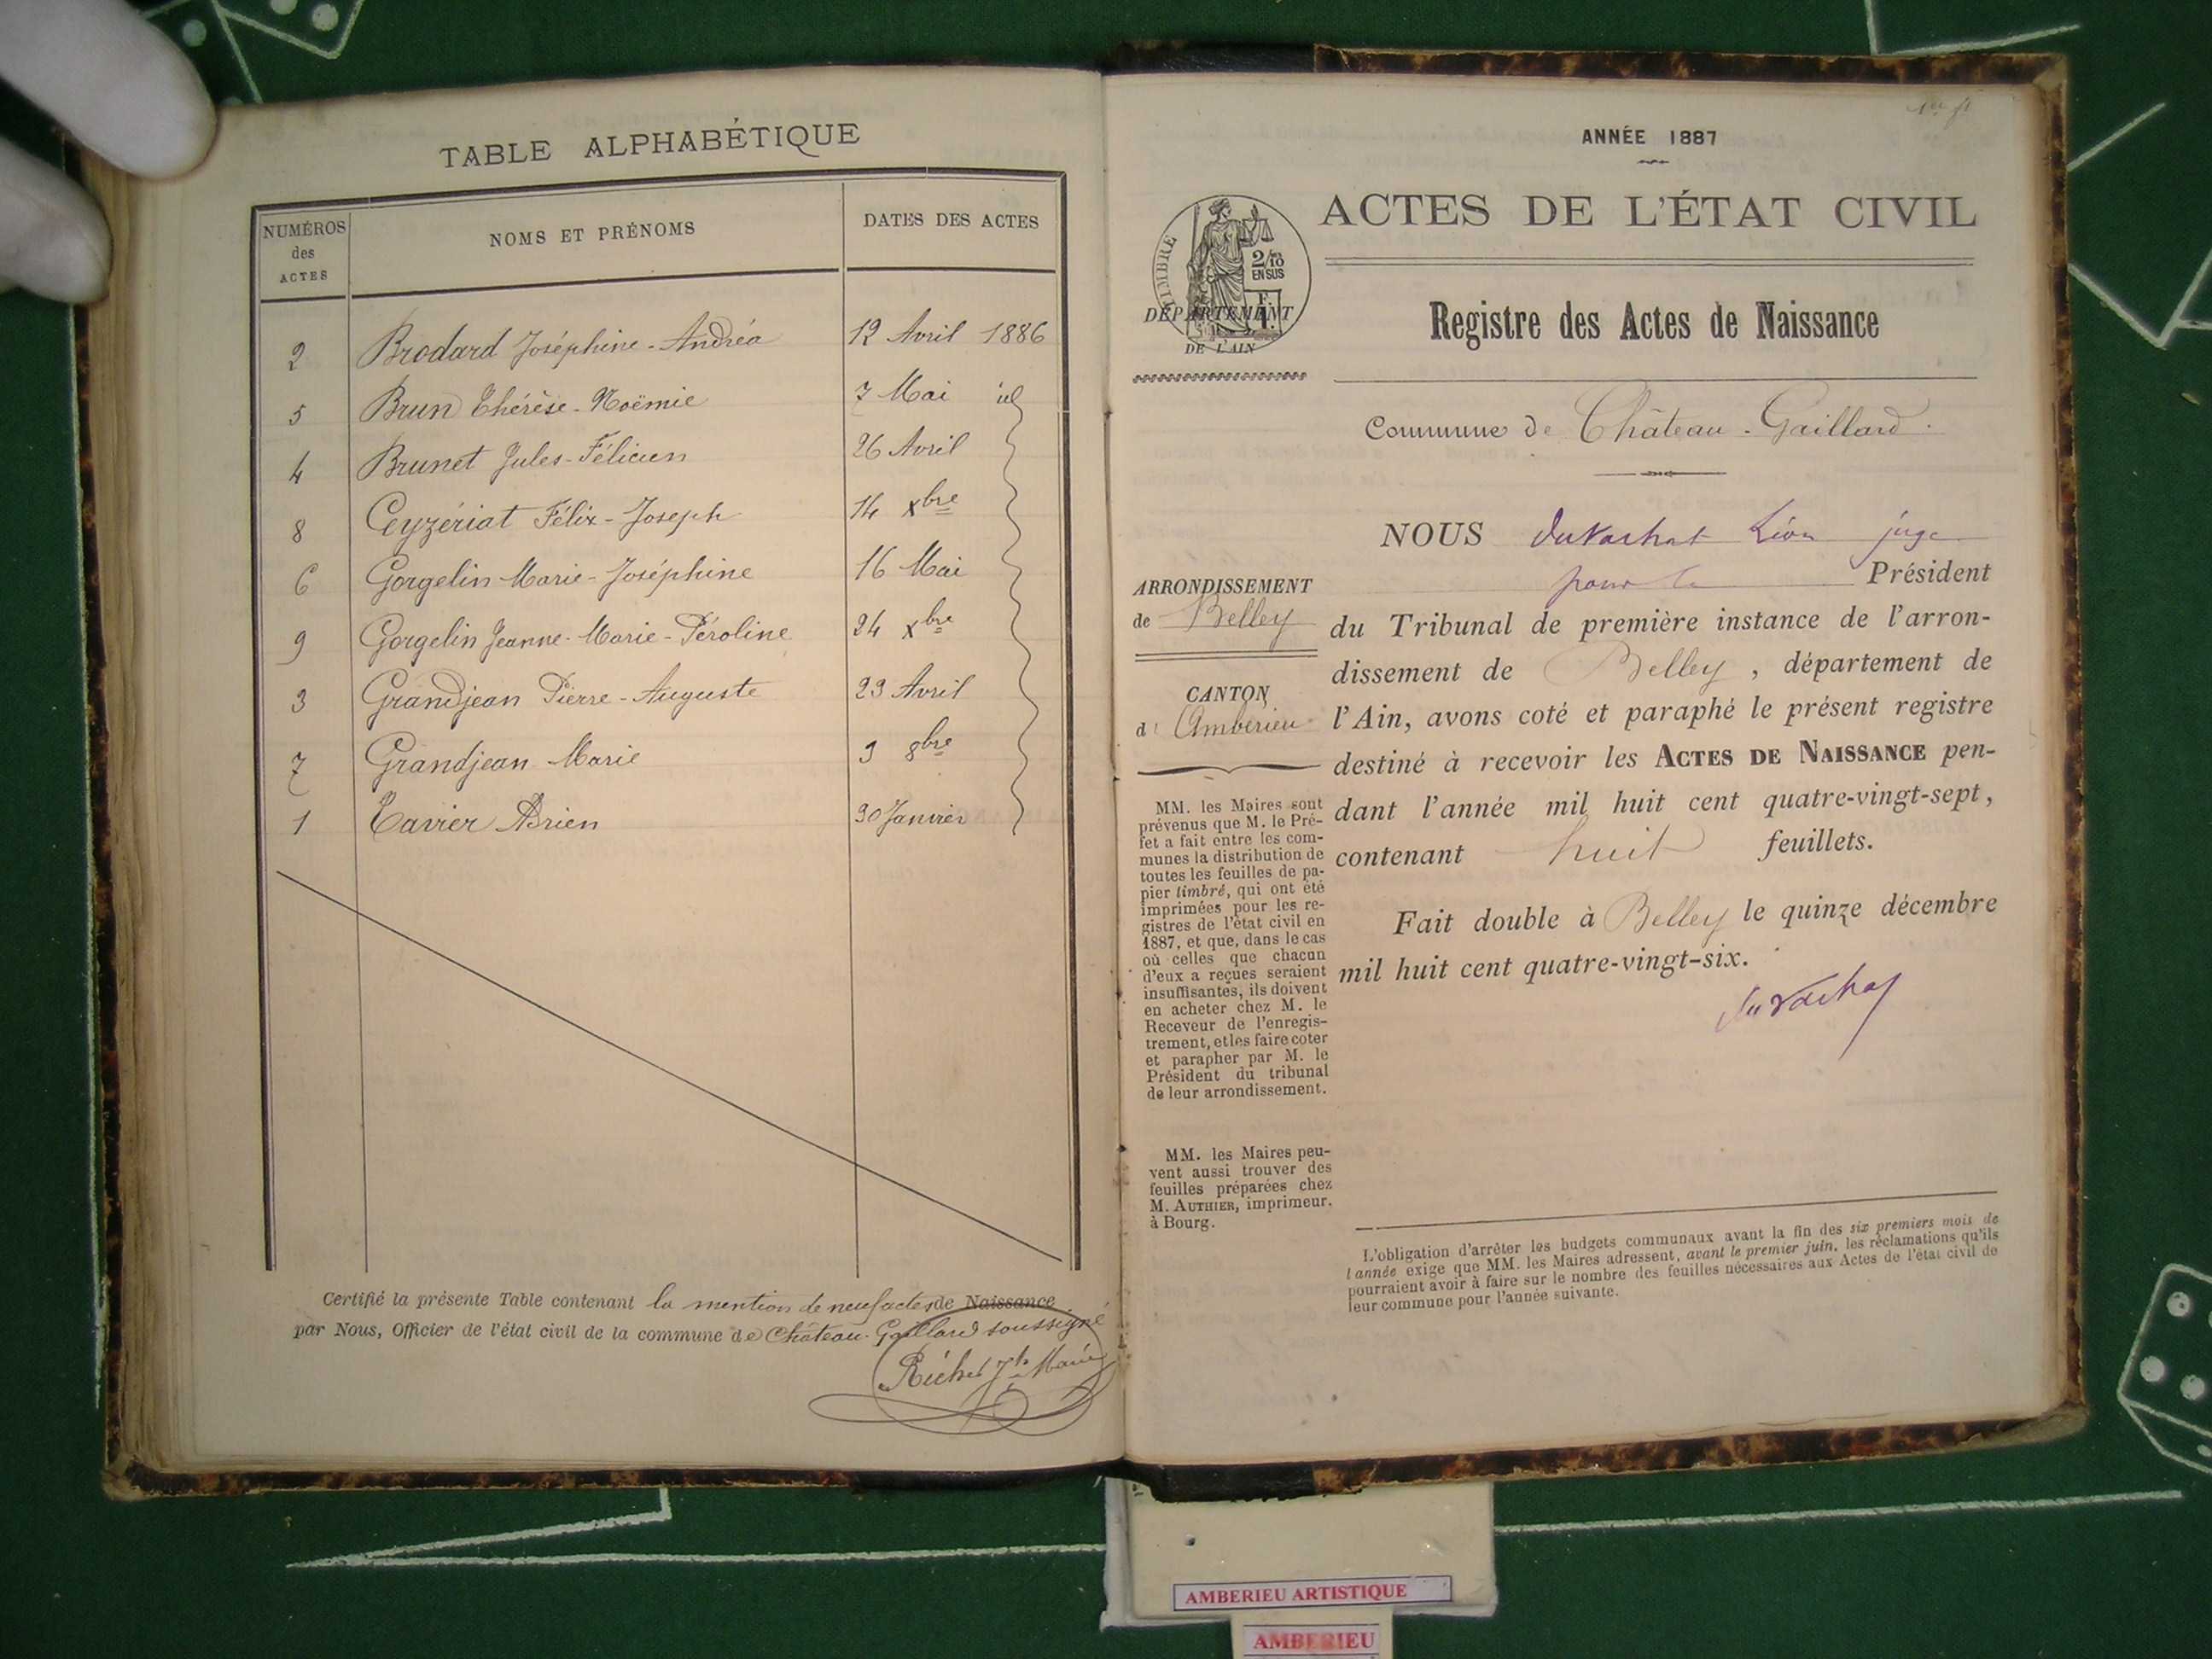 TABLE ALPHABÉTIQUE
NUMÉROS des ACTES NOMS ET PRÉNOMS DATES DES ACTES
2 Brodard Joséphine-Andréa 12 Avril 1886
5 Brun Thérèse-Noëmie 7 Mai id
4 Brunet Jules-Félicien 26 Avril
8 Ceyzériat Félix-Joseph 14 Xbre
6 Gorgelin Marie-Joséphine 16 Mai
9 Gorgelin Jeanne-Marie-Péroline 24 Xbre
3 Grandjean Pierre-Auguste 23 Avril
7 Grandjean Marie 9 8bre
1 Tavier Adrien 30 Janvier
Certifié la présente Table contenant la mention de neuf actes de Naissance
par Nous, Officier de l'état civil de la commune de Château-Gaillard soussigné
Maire
ANNÉE 1887
ACTES DE L'ÉTAT CIVIL
TIMBRE
2/10
EN SUS
DÉPARTEMENT
DE L'AIN
Registre des Actes de Naissance
Commune de Château-Gaillard.
NOUS duvachat Léon juge
pour le Président
du Tribunal de première instance de l'arron-
dissement de Belley, département de
l'Ain, avons coté et paraphé le présent registre
destiné à recevoir les ACTES DE NAISSANCE pen-
dant l'année mil huit cent quatre-vingt-sept,
contenant huit feuillets.
Fait double à Belley le quinze décembre
mil huit cent quatre-vingt-six.
duvachat
ARRONDISSEMENT
de Belley
CANTON
d'Ambérieu
MM. les Maires sont
prévenus que M. le Pré-
fet a fait entre les com-
munes la distribution de
toutes les feuilles de pa-
pier timbré, qui ont été
imprimées pour les re-
gistres de l'état civil en
1887, et que, dans le cas
où celles que chacun
d'eux a reçues seraient
insuffisantes, ils doivent
en acheter chez M. le
Receveur de l'enregis-
trement, et les faire coter
et parapher par M. le
Président du tribunal
de leur arrondissement.
MM. les Maires peu-
vent aussi trouver des
feuilles préparées chez
M. AUTHIER, imprimeur.
à Bourg.
L'obligation d'arrêter les budgets communaux avant la fin des six premiers mois de
l'année exige que MM. les Maires adressent, avant le premier juin, les réclamations qu'ils
pourraient avoir à faire sur le nombre des feuilles nécessaires aux Actes de l'état civil de
leur commune pour l'année suivante.
AMBERIEU ARTISTIQUE
AMBERIEU